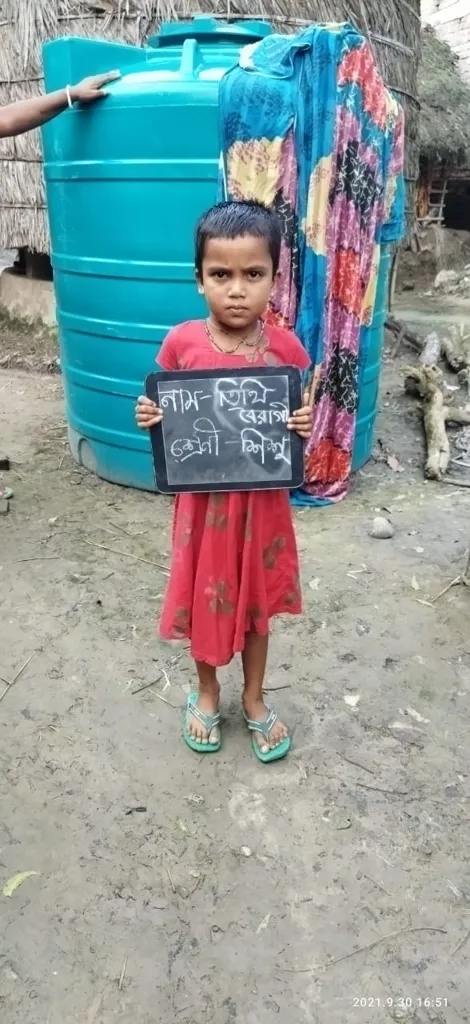 নাম- তিথি
বৈরাগী
শ্রেণী - শিশু
2021.9.30 16:51